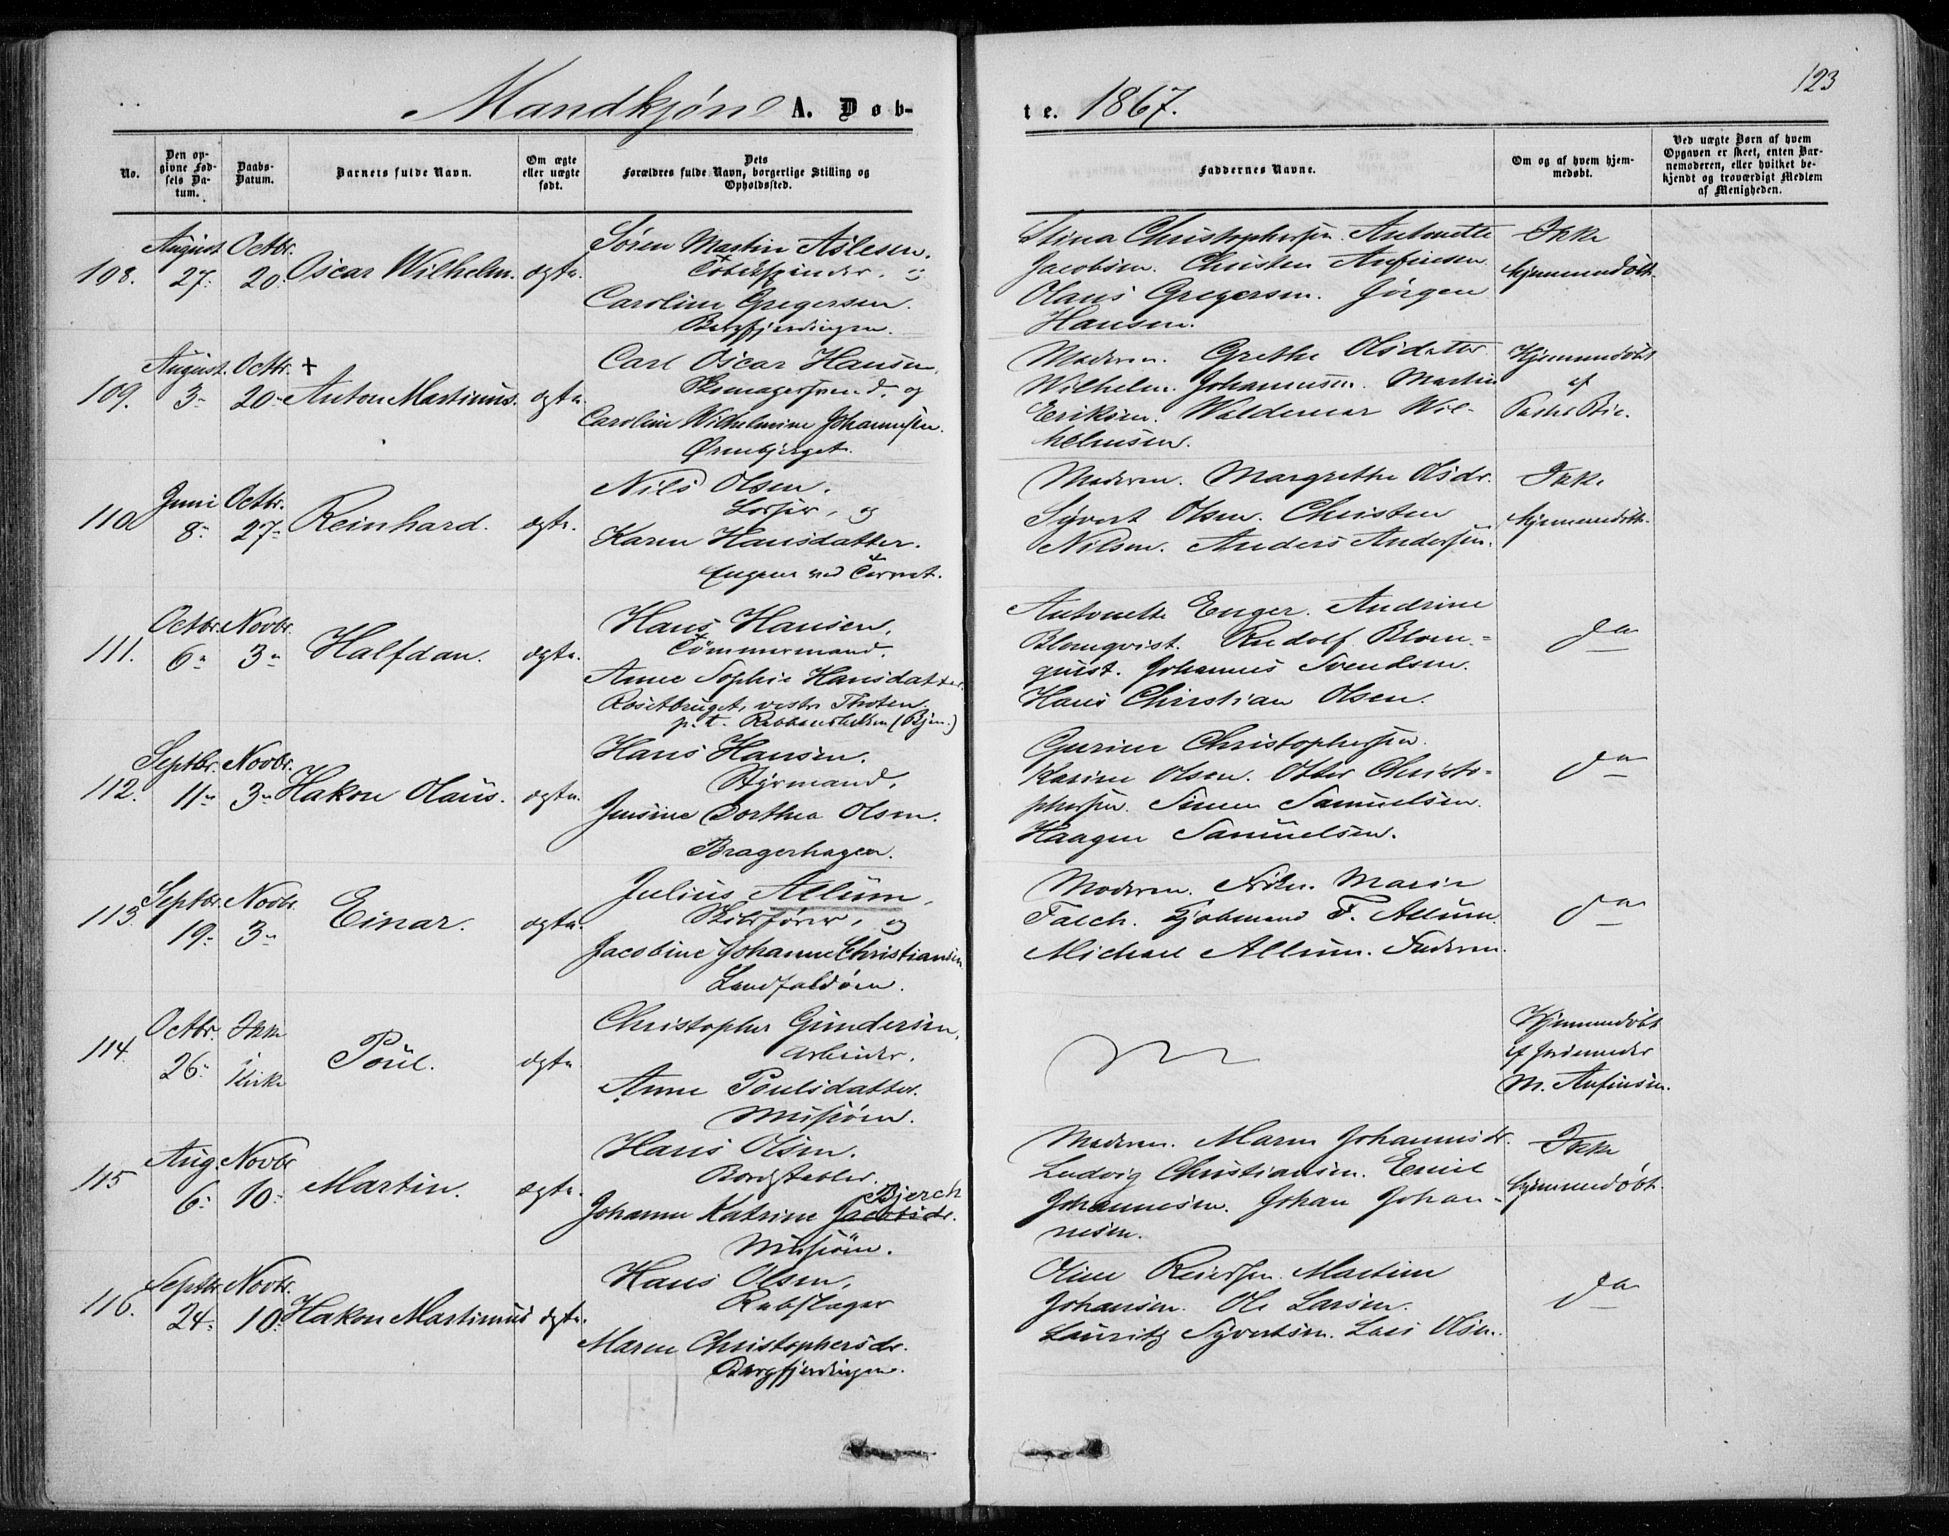 Mandkjøn A. Døb-
te. 1867.
123
No.
Den op-
givne Fød-
sels Da-
tum.
Daabs-
Datum.
Barnets fulde Navn.
Om ægte
eller uægte
født.
Dets
Forældres fulde Navn, borgerlige Stilling og
Opholdssted.
Faddernes Navne.
Om og af hvem hjem-
medøbt.
Ved uægte Børn af hvem
Opgaven er skeet, enten Bar-
nemoderen, eller hvilket be-
kjendt og troværdigt Medlem
af Menigheden.
108.
August
27.
Octbr.
20.
Oscar Wilhelm.
ægte.
Søren Martin Aslesen.
Tobakspinder. og
Caroline Gregersen.
Bergfjerdingen.
Stina Christophersen. Antonette
Jacobsen. Christen Anfinsen
Olaus Gregersen. Jörgen
Hansen.
Ikke
hjemmedøbt.
109.
August.
3
Octbr.
20
+
Anton Martinus.
ægte.
Carl Oscar Hansen,
Skomagersvend. og
Caroline Wilhelmine Johannesen.
Ørenbjerget.
Moderen. Grethe Olsdatter
Wilhelm Johannesen. Martin
Eriksen. Waldemar Wil-
helmsen.
Hjemmedøbt
af
110
Juni
8
Octbr.
27
Reinhard.
ægte.
Nils Olsen.
Losser, og
Karen Hansdatter.
Engene ved Tørnet.
Moderen. Margrethe Olsdr.
Syvert Olsen. Christen
Nilsen. Anders Andersen.
Ikke
hjemmedøbt.
111.
Octbr.
6
Novbr.
3
Halfdan.
ægte.
Hans Hansen,
Tömmermand.
Anne Sophie Hansdatter.
Rosetbruget, vestre Thoten
p. t.
Antonette Enger. Andrine
Blomqvist. Rudolf Blom-
quist. Johannes Svendsen.
Hans Christian Olsen.
da
112.
Septbr.
11
Novbr.
3
Hakon Olaus.
ægte.
Hans Hansen.
Styrmand,
Jensine Dorthea Olsen.
Bragerhagen.
Gurine Christophersen.
Karine Olsen. Otter Christo-
phersen. Simen Samuelsen.
Haagen Samuelsen.
da
113.
Septbr.
19.
Novbr.
3
Einar.
ægte.
Julius Allum,
Skibsfører, og
Jacobine Johanne Christiansen
Landfaldøen.
Moderen. Frøkn. Marie
Falch. Kjøbmand F. Allum.
Michael Allum. Faderen.
da
114.
Octbr.
26
Ikke
i Kirke
Poul.
ægte
Christopher Gundersen,
Arbeider.
Anne Poulsdatter.
Hjemmedøbt
af Jordemoder
M. Anfinsen.
115
Aug.
6
Novbr
10
Martin.
ægte.
Hans Olsen.
Bordstabler.
Johanne Katrine Jacobsdr. Bjerch
Moderen. Maren Johannesdr.
Ludvig Christiansen. Emil
Johannesen. Johan Johan-
nesen.
Ikke
hjemmedøbt.
116.
Septbr.
24.
Novbr.
10
Hakon Martinus
ægte.
Hans Olsen,
Rebslager
Maren Christophersdr.
Bergfjerdingen.
Oline Reiersen. Martin
Johansen. Ole Larsen.
Lauritz Syvertsen. Lars Olsen.
da